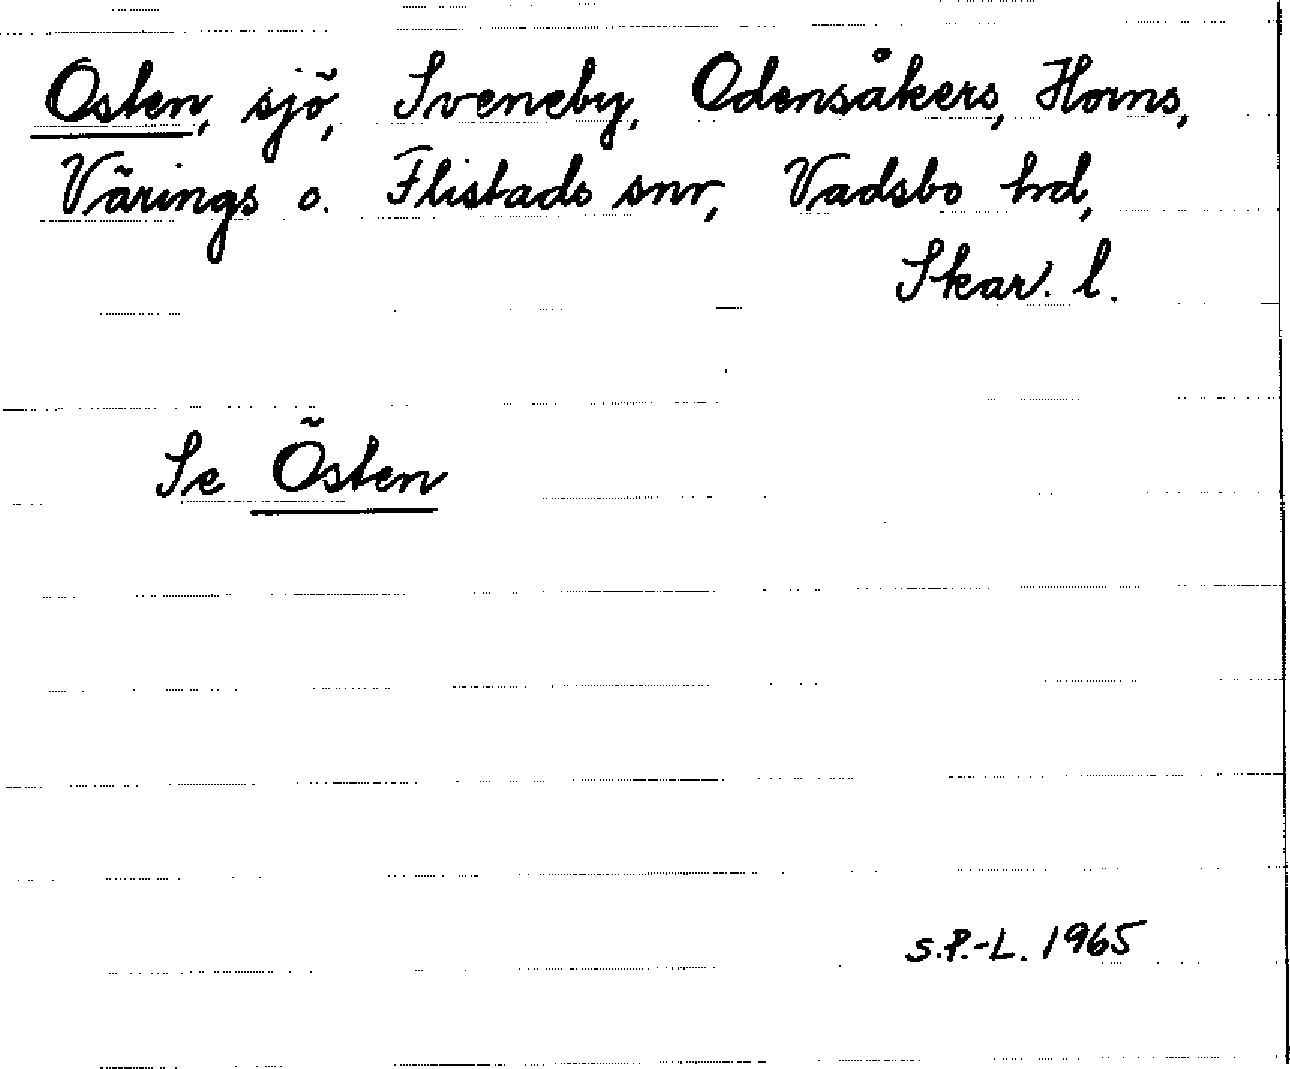 Osten, sjö, Sveneby, Odensåkers, Horns,
Värings o. Flistads snr, Vadsbo hd,
Skar. l.
Se Östen
S.P.-L. 1965